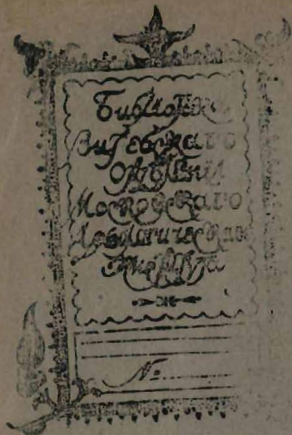 Библиотека
Витебскаго
Отдѣленія
Московскаго
Археологическаго
Института
№